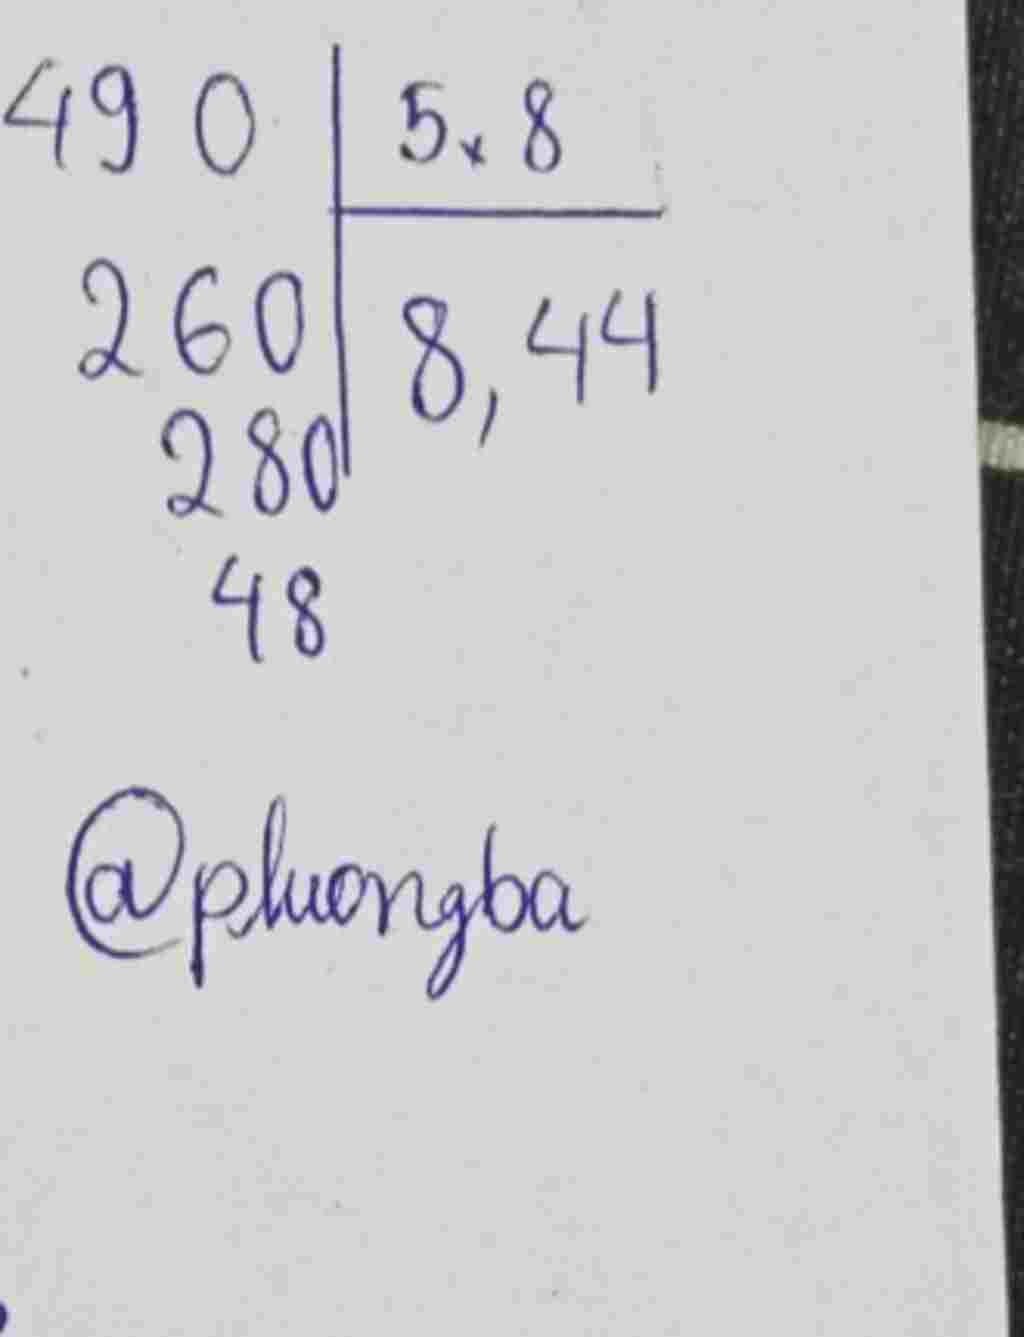 490 5x8
260 8,44
280
48
@pluongba